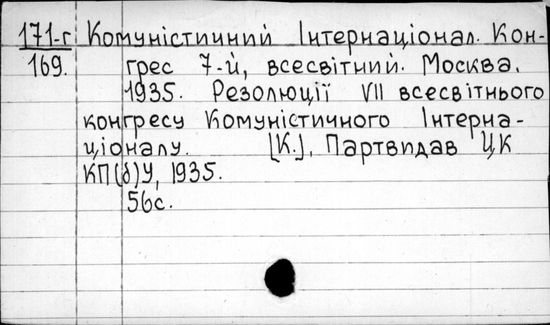 171-г Комуністичний Інтернаціонал. Кон-
169. грес 7-й, всесвітний. Москва.
1935. Резолюції VII всесвітнього
конгресу Комуністичного Інтерна-
ціоналу. [К.], Партвидав ЦК
КП(б)У, 1935.
56с.